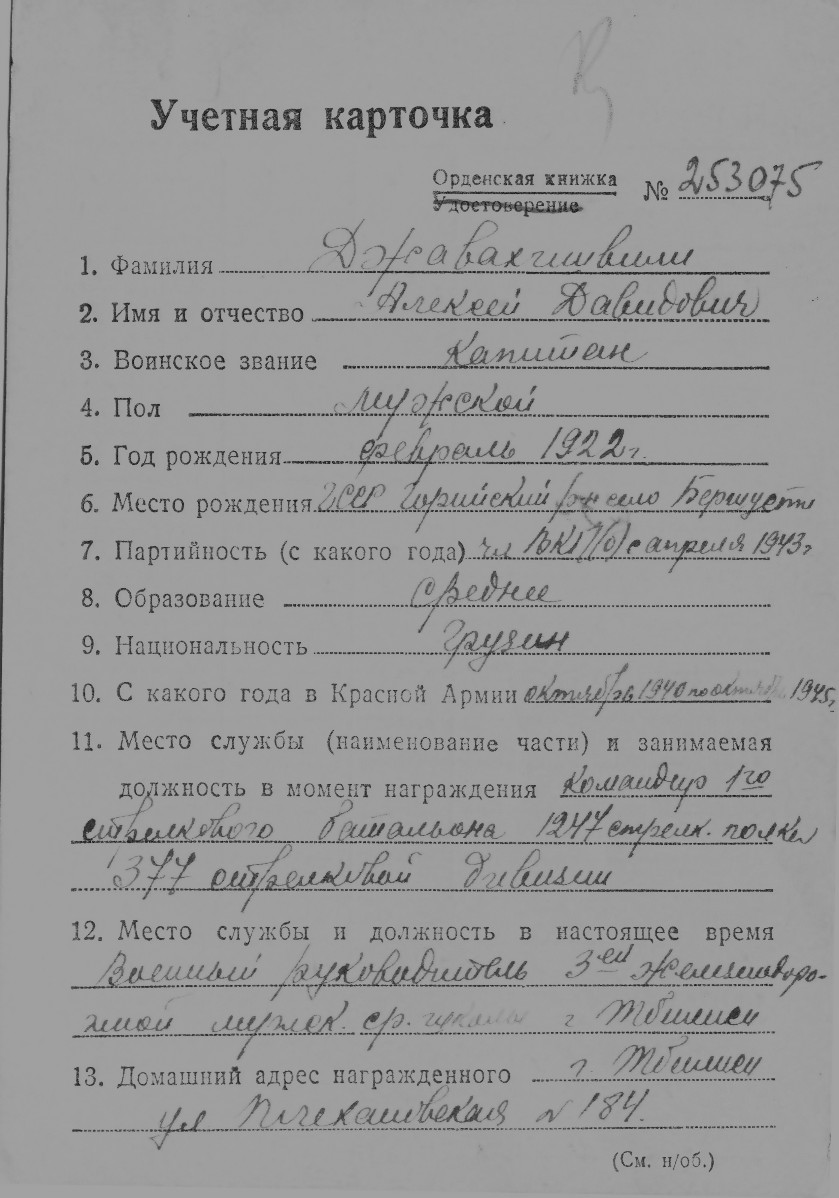 Учетная карточка
Орденская книжка № 253075
Удостоверение
1. Фамилия Джавахишвили
2. Имя и отчество Алексей Давидович
3. Воинское звание Капитан
4. Пол мужской
5. Год рождения февраль 1922 г.
6. Место рождения ГССР Горийский рн село
7. Партийность (с какого года) чл ВКП(б) с апреля 1943 г
8. Образование среднее
9. Национальность грузин
10. С какого года в Красной Армии октябрь 1940 по октябрь 1945 г
11. Место службы (наименование части) и занимаемая
должность в момент награждения Командир 1го
стрелкового батальона 1247 стрелк. полка
377 стрелковой дивизии
12. Место службы и должность в настоящее время
Военный руководитель 3ей железнодоро-
жной мужск. ср. школы г Тбилиси
13. Домашний адрес награжденного г. Тбилиси
ул № 184.
(См. н/об.)